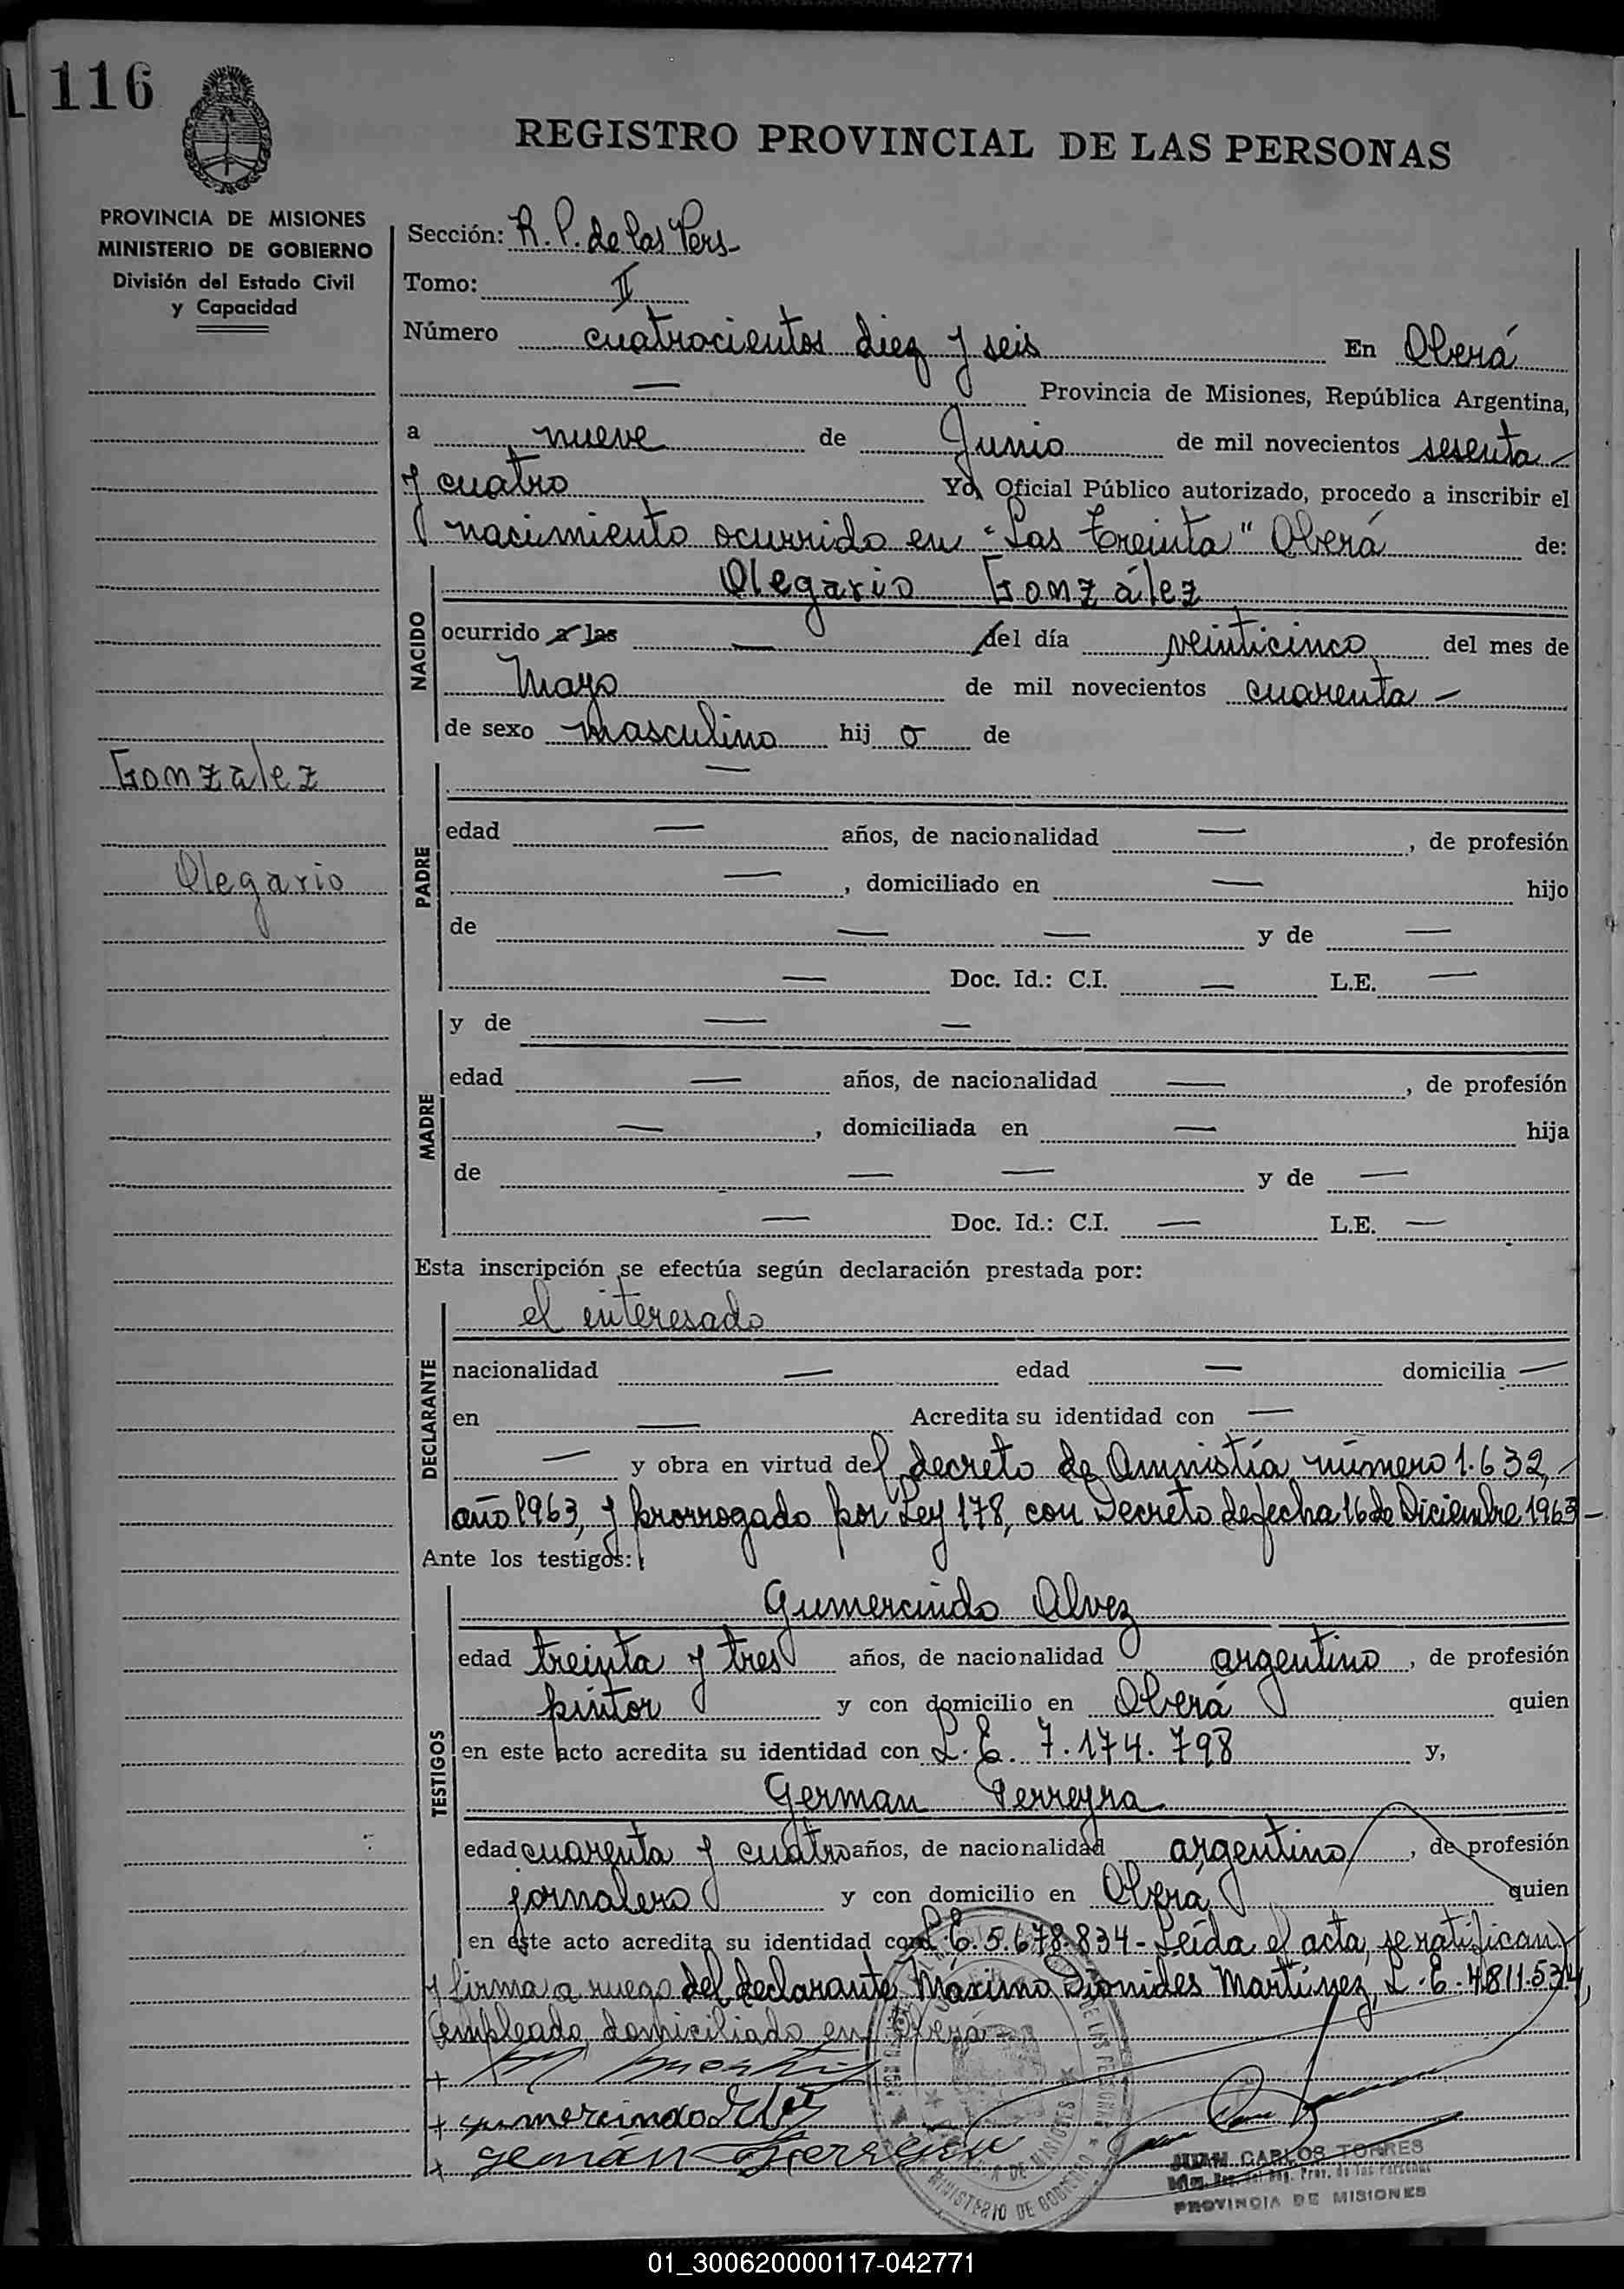 116
REGISTRO PROVINCIAL DE LAS PERSONAS
PROVINCIA DE MISIONES
MINISTERIO DE GOBIERNO
División del Estado Civil
y Capacidad
González
Olegario
Sección: R. P. de las Pers-
Tomo: II
Número cuatrocientos diez y seis En Oberá
— Provincia de Misiones, República Argentina,
a nueve de Junio de mil novecientos sesenta -
y cuatro Yo, Oficial Público autorizado, procedo a inscribir el
nacimiento ocurrido en "Las Treinta" Oberá de:
NACIDO
Olegario González
ocurrido a las — del día veinticinco del mes de
Mayo de mil novecientos cuarenta -
de sexo masculino hij o de
PADRE
—
edad — años, de nacionalidad —, de profesión
—, domiciliado en — hijo
de — — y de —
— Doc. Id.: C.I. — L.E. —
MADRE
y de — —
edad — años, de nacionalidad —, de profesión
—, domiciliada en — hija
de — — y de —
— Doc. Id.: C.I. — L.E. —
Esta inscripción se efectúa según declaración prestada por:
DECLARANTE
el interesado
nacionalidad — edad — domicilia —
en — Acredita su identidad con —
— y obra en virtud del decreto de Amnistía número 1.632, -
año 1963, y prorrogado por Ley 178, con Decreto de fecha 16 de Diciembre 1963 -
Ante los testigos:
TESTIGOS
Gumercindo Alvez
edad treinta y tres años, de nacionalidad argentino, de profesión
pintor y con domicilio en Oberá quien
en este acto acredita su identidad con L. E. 7.174.798 y,
German Ferreyra
edad cuarenta y cuatro años, de nacionalidad argentino, de profesión
jornalero y con domicilio en Oberá quien
en este acto acredita su identidad con L.E. 5.678.834 - Leída el acta, se ratifican
y firma a ruego del declarante Máximo Dionides Martínez, L. E. 4811.534,
empleado, domiciliado en Oberá -
JUAN CARLOS TORRES
PROVINCIA DE MISIONES
MINISTERIO DE GOBIERNO
01_300620000117-042771